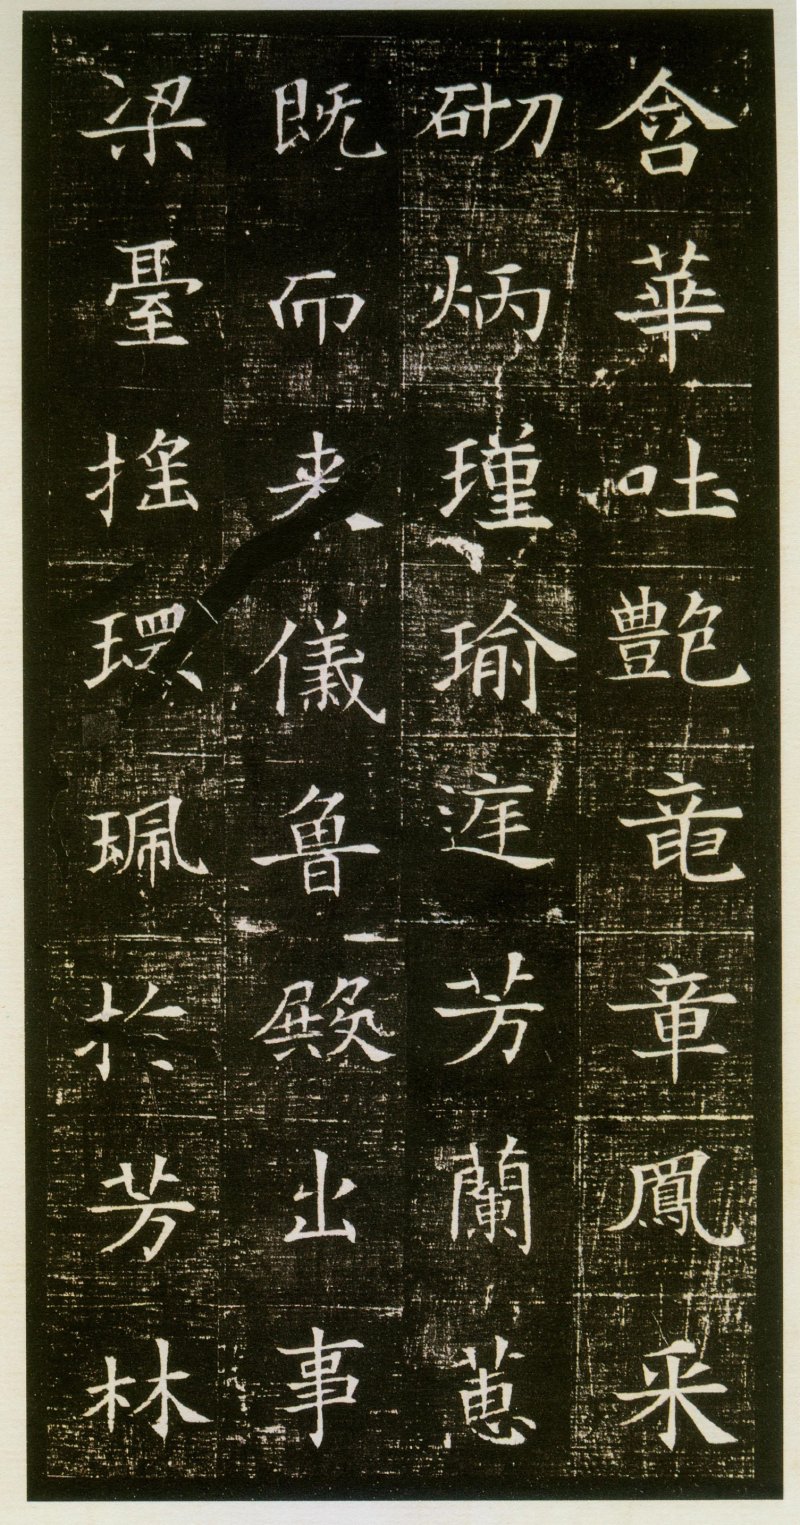 含華吐艷龍章鳳采
砌炳瑾瑜庭芳蘭蕙
既而来儀魯殿出事
梁臺搖環珮於芳林